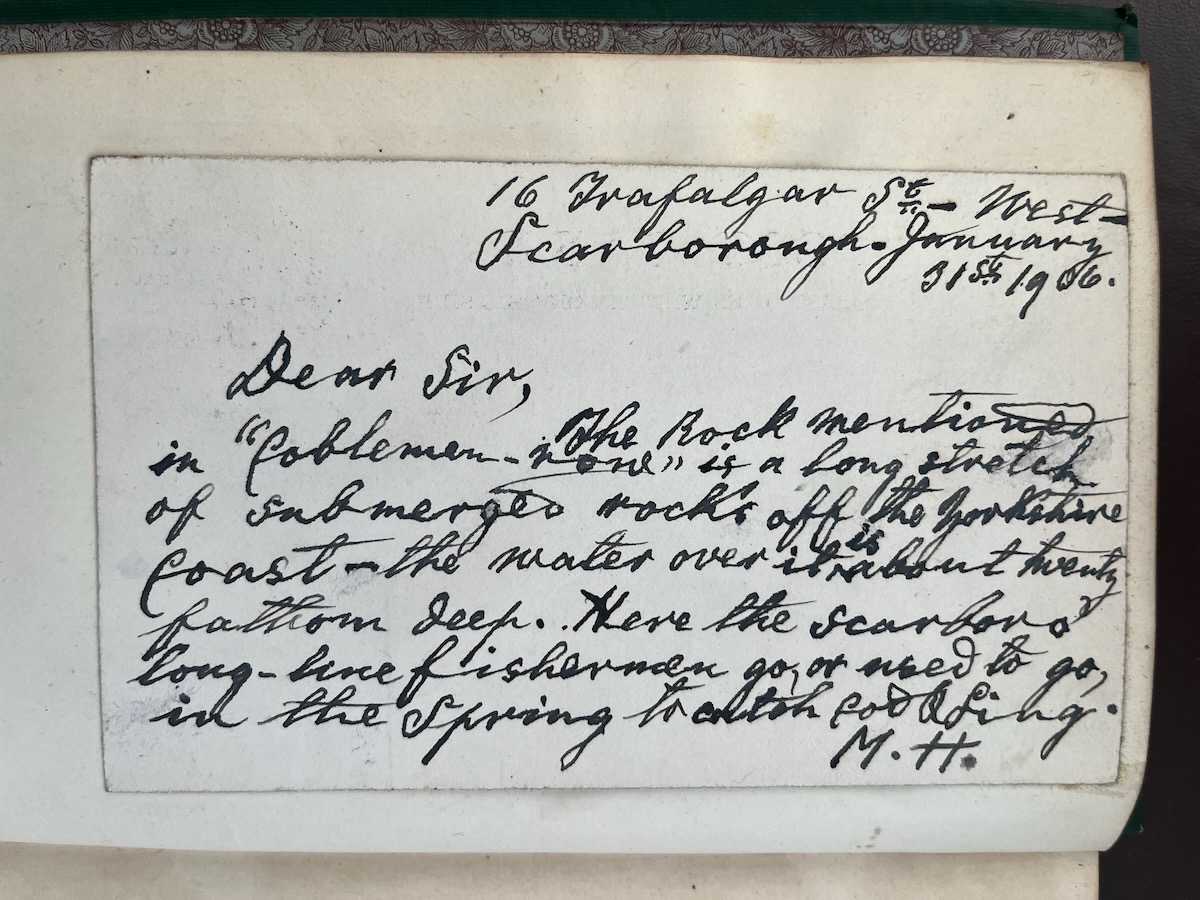 16 Trafalgar St. - West -
Scarborough - January
31st 1906.
Dear Sir,
The Rock mentioned
in "Coblemen - " is a long stretch
of submerged rocks off the Yorkshire
Coast - the water over it is about twenty
fathom deep. Here the Scarboro'
long-line fishermen go, or used to go,
in the Spring to catch cod & Ling.
M. H.